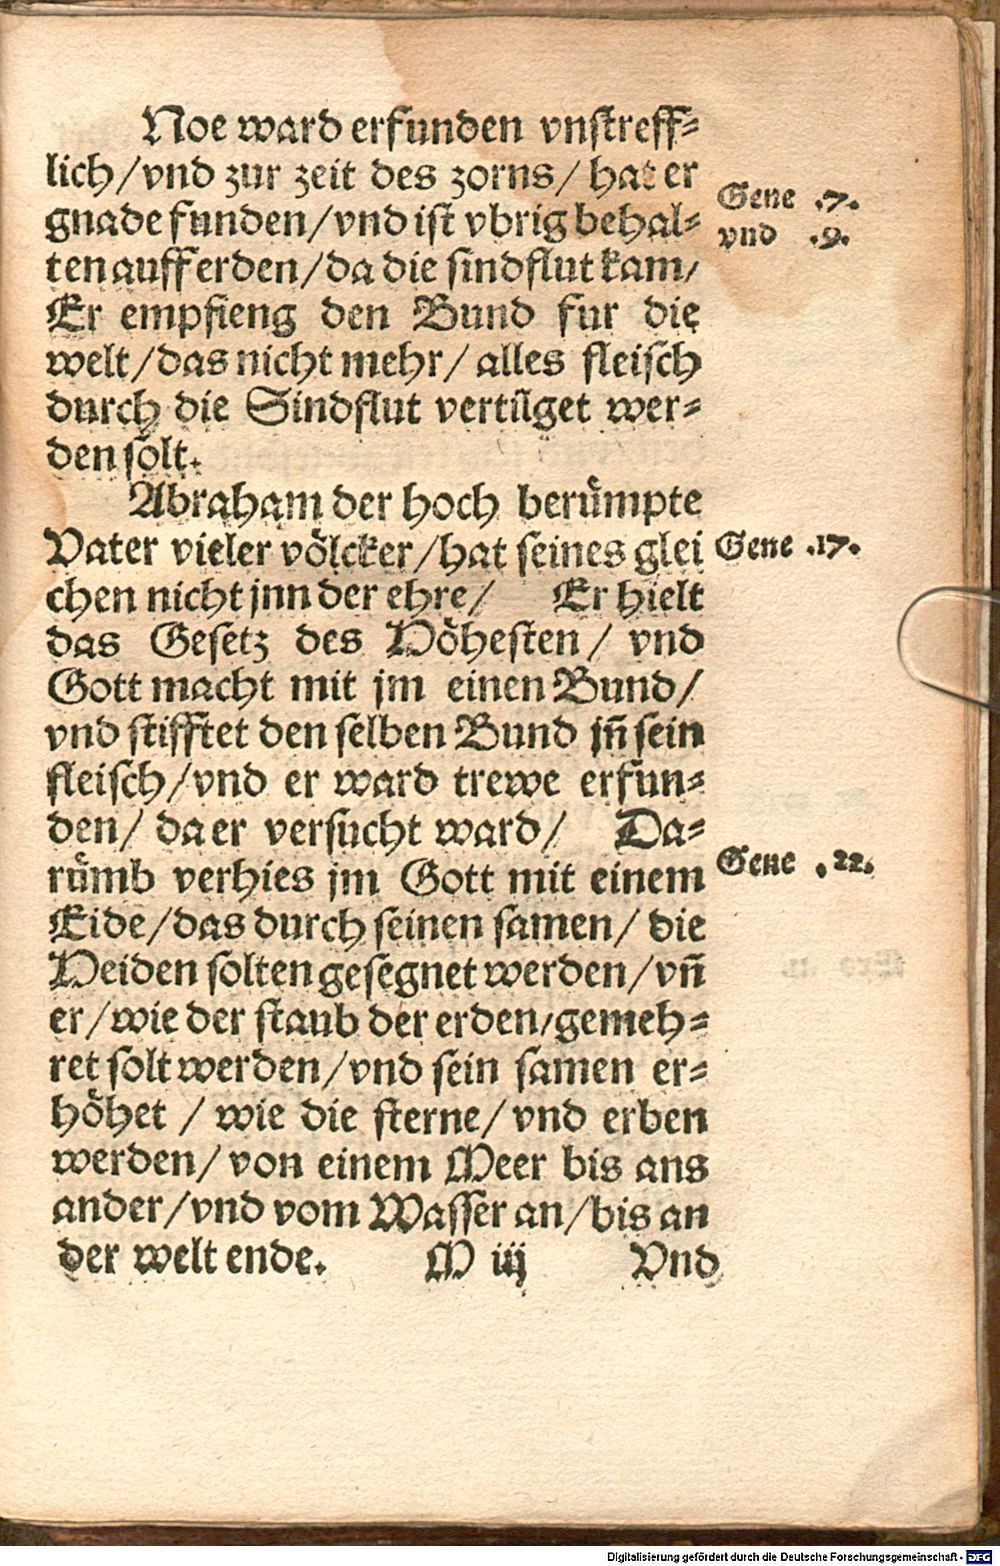 Noe ward erfunden vnstreff⸗
lich/vnd zur zeit des zorns/ hat er
gnade funden/vnd ist vbrig behal⸗
ten auff erden/da die sindflut kam/
Er empfieng den Bund fur die
welt/das nicht mehr/ alles fleisch
durch die Sindflut vertilget wer⸗
den solt.
Gene .7.
vnd .9.
Abraham der hoch berümpte
Vater vieler völcker/hat seines glei
chen nicht jnn der ehre/ Er hielt
das Gesetz des Höhesten/ vnd
Gott macht mit jm einen Bund/
vnd stifftet den selben Bund jñ sein
fleisch/vnd er ward trewe erfun⸗
den/ da er versucht ward/ Da⸗
rümb verhies jm Gott mit einem
Eide/das durch seinen samen/ die
Heiden solten gesegnet werden/vñ
er/wie der staub der erden/gemeh⸗
ret solt werden/vnd sein samen er⸗
höhet / wie die sterne/vnd erben
werden/von einem Meer bis ans
ander/vnd vom Wasser an/bis an
der welt ende.
Gene .17.
Gene .22.
M iij
Vnd
Digitalisierung gefördert durch die Deutsche Forschungsgemeinschaft - DFG